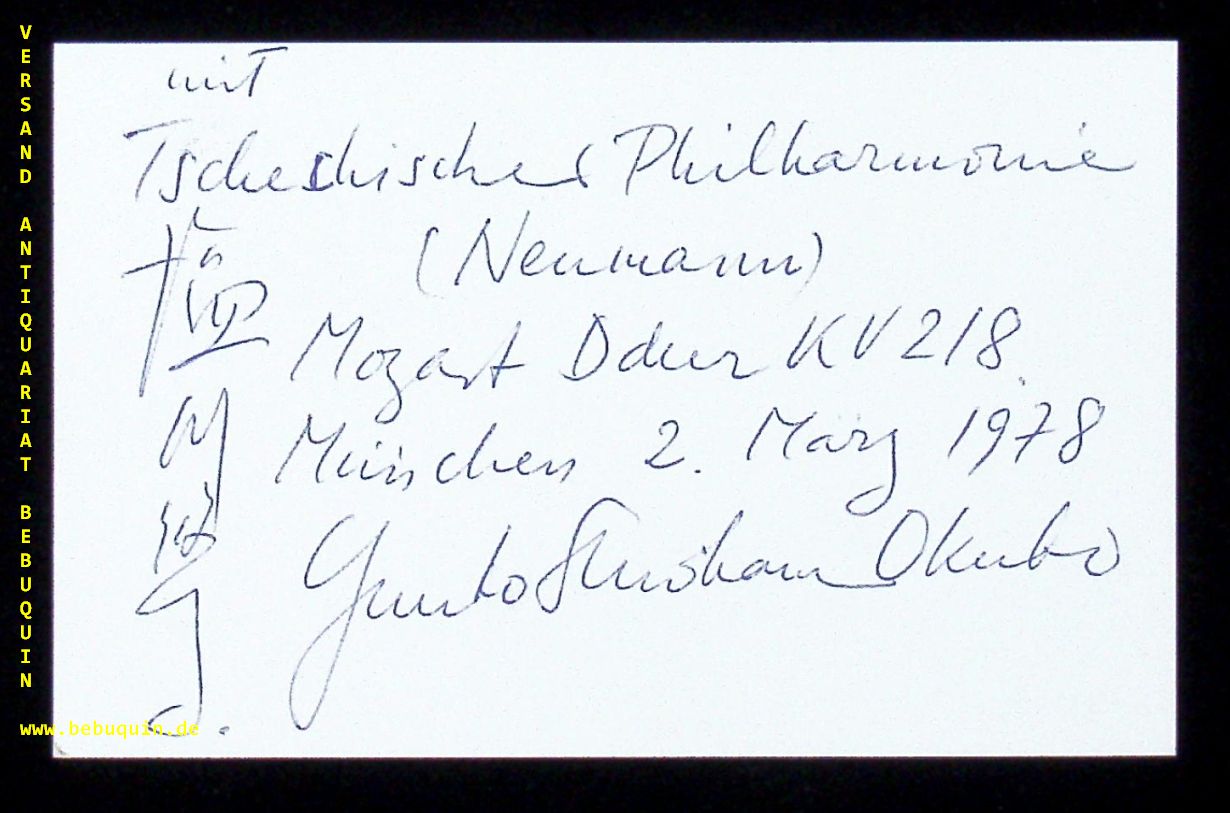 VERSAND ANTIQUARIAT BEBUQUIN
mit
Tschechischer Philharmonie
(Neumann)
Mozart Ddur KV 218
München 2. März 1978
Okubo
www.bebuquin.de